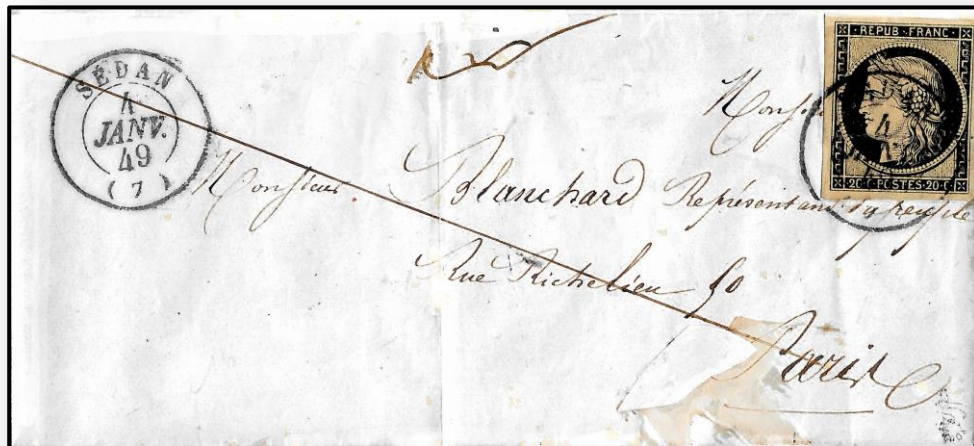 SEDAN
4
JANV.
49
(7)
REPUB. FRANC.
4
20.C.POSTES.20.C.
Monsieur
Blanchard Représentant du peuple
Rue Richelieu 50
Paris